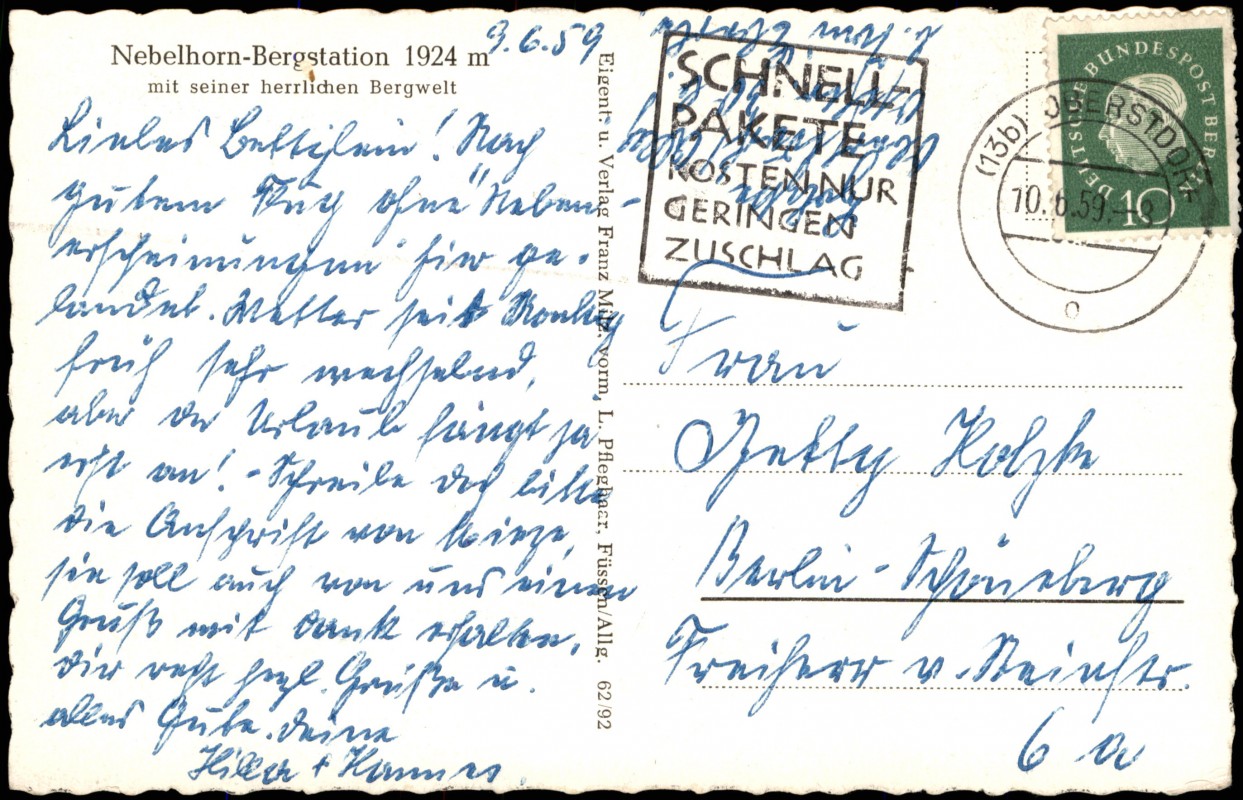 Nebelhorn-Bergstation 1924 m
mit seiner herrlichen Bergwelt
9.6.59
Liebes Bettilein! Nach
gutem Flug ohne Neben-
erscheinungen hier ge-
landet. Wetter seit Montag
früh sehr wechselnd,
aber der Urlaub fängt ja
erst an! - Schreibe doch bitte
die Anschrift von
sie soll auch von uns einen
Gruß mit Dank erhalten.
Dir recht herzl. Grüße u.
alles Gute. Deine
Hilla + Hannes.
Eigent. u. Verlag Franz Milz, vorm. L. Pfleghaar, Füssen/Allg. 62/92
SCHNELL-
PAKETE
KOSTEN NUR
GERINGEN
ZUSCHLAG
(13b) OBERSTDORF
10.6.59.-
o
DEUTSCHE BUNDESPOST BERLIN
10
Frau
Betty
Berlin-Schöneberg
Freiherr v. Steinstr.
6 a